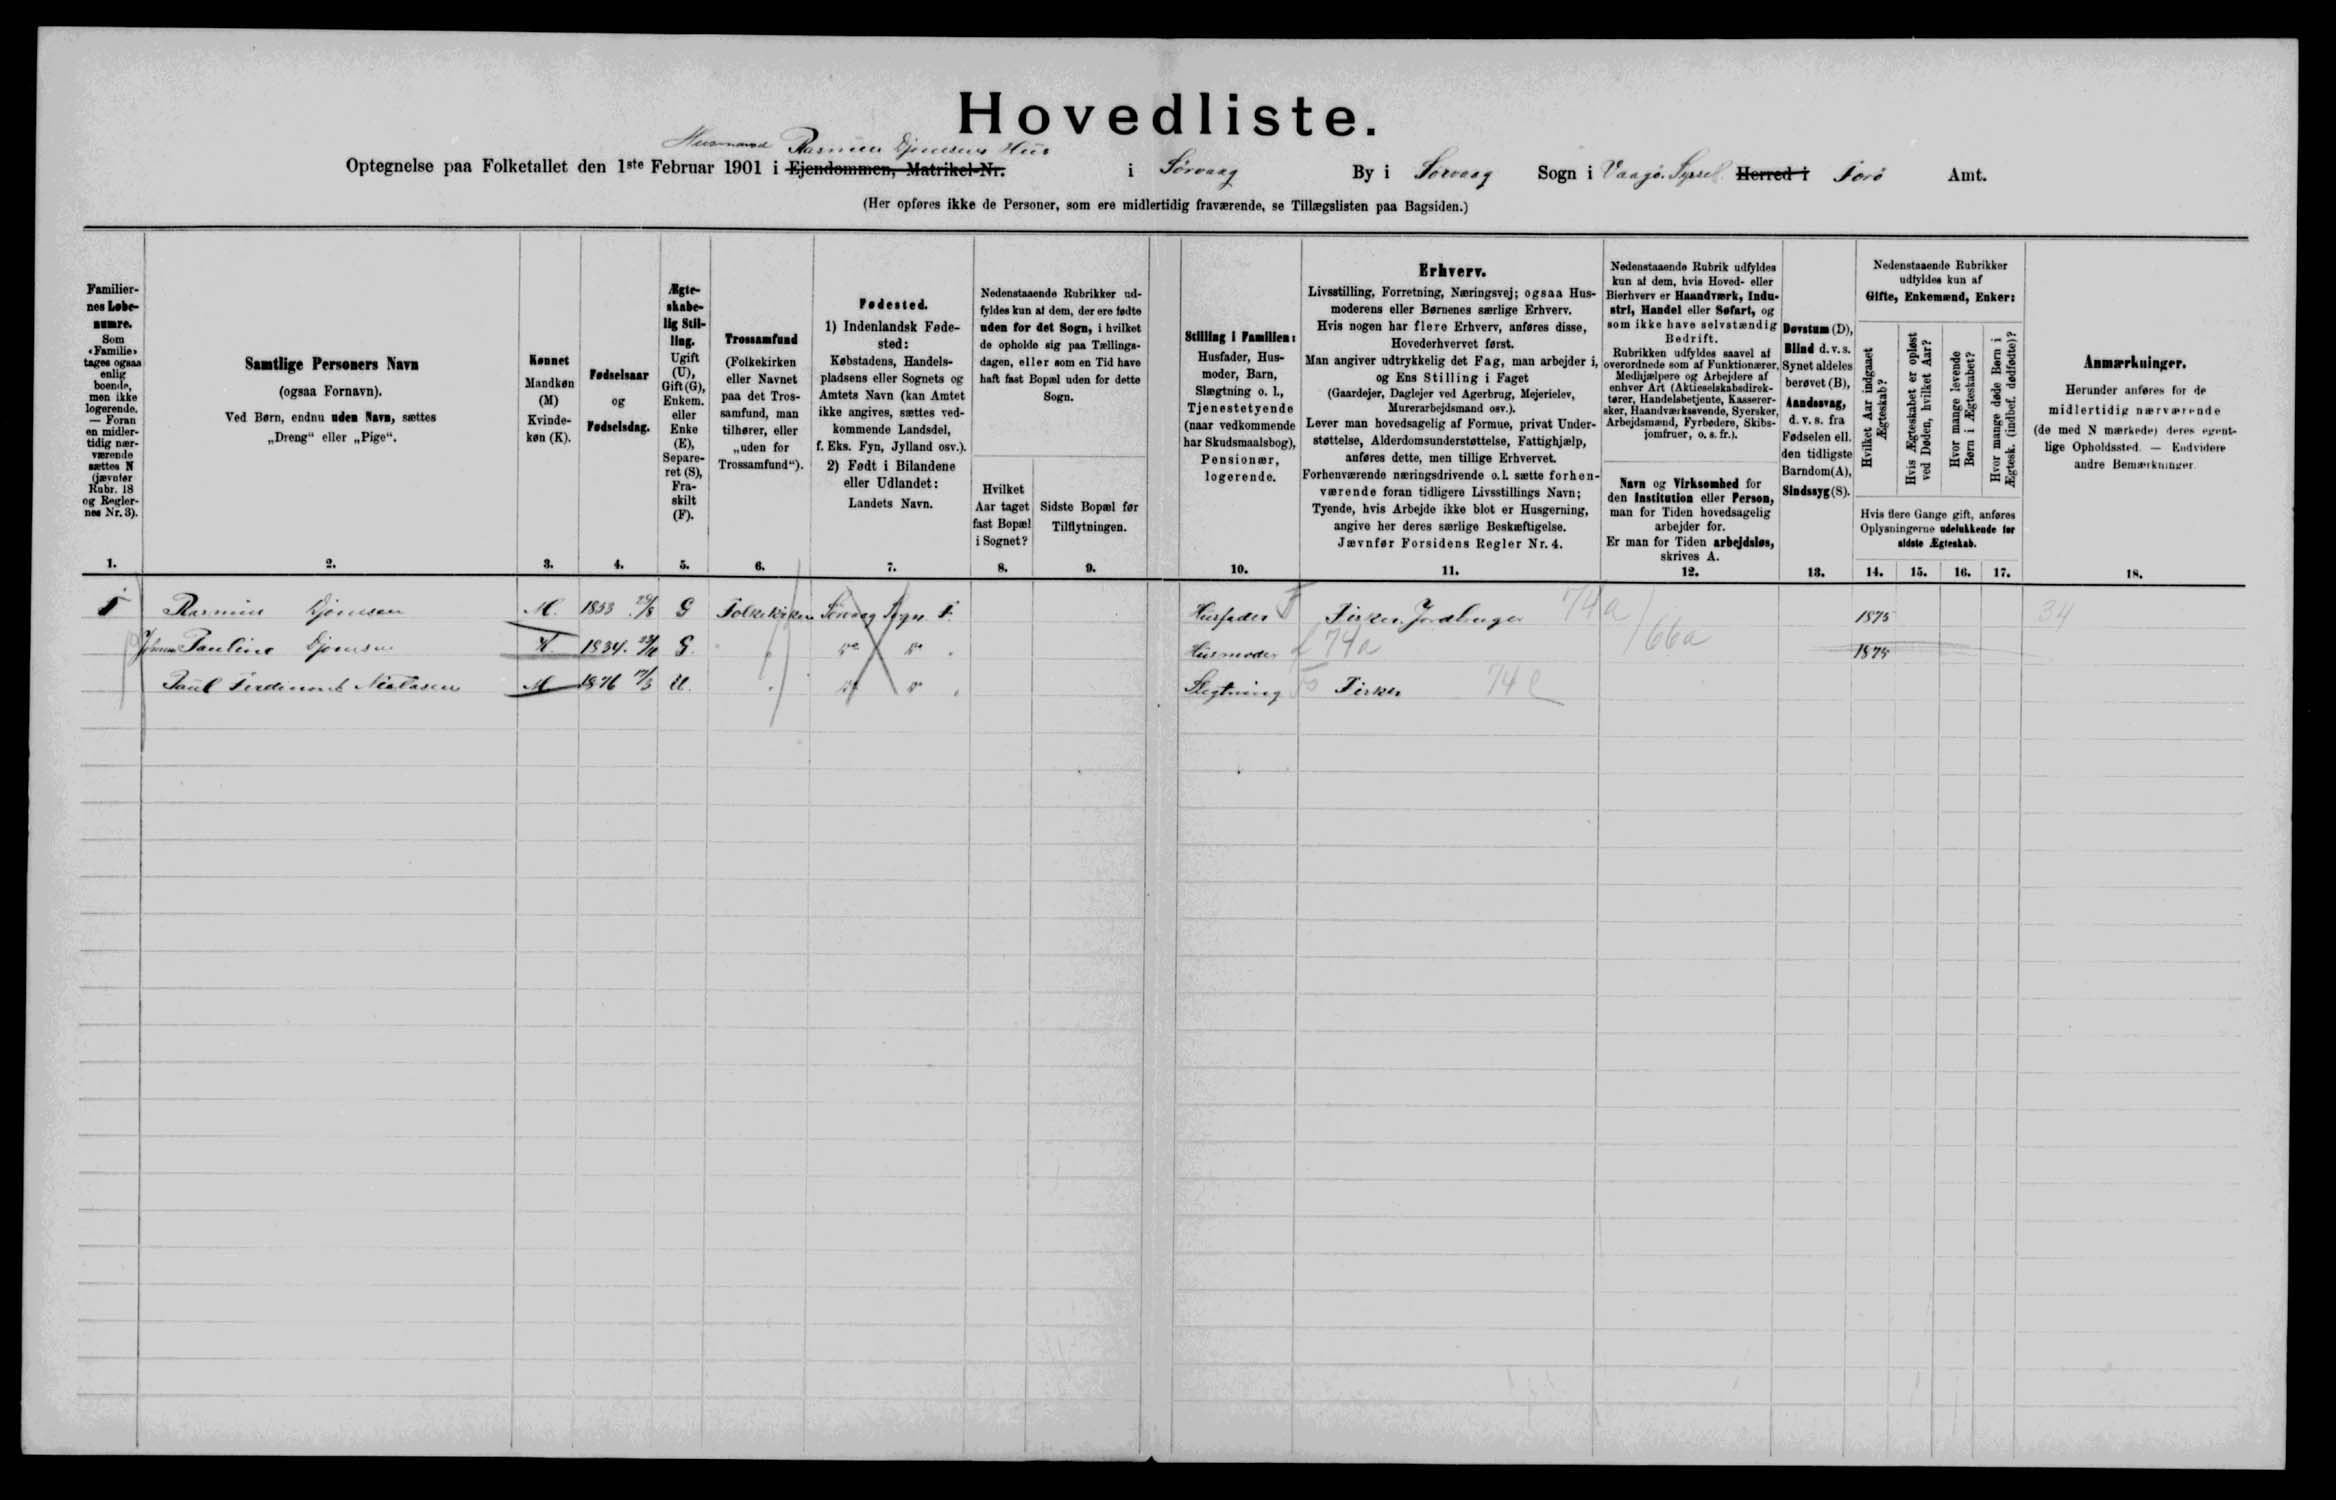 Hovedliste.
Husmand Rasmus Djonesens Hus
Optegnelse paa Folketallet den 1ste Februar 1901 i Ejendommen, Matrikel-Nr. i Sørvaag By i Sørvaag Sogn i Vaagø Syssel Herred i Færø Amt.
(Her opføres ikke de Personer, som ere midlertidig fraværende, se Tillægslisten paa Bagsiden.)
Familier-
nes Løbe-
numre.
Som
«Familie»
tages ogsaa
enlig
boende,
men ikke
logerende.
— Foran
en midler-
tidig nær-
værende
sættes N
(jævnfør
Rubr. 18
og Regler-
nes Nr. 3).
1.
Samtlige Personers Navn
(ogsaa Fornavn).
Ved Børn, endnu uden Navn, sættes
„Dreng“ eller „Pige“.
2.
Kønnet
Mandkøn
(M)
Kvinde-
køn (K).
3.
Fødselsaar
og
Fødselsdag.
4.
Ægte-
skabe-
lig Stil-
ling.
Ugift
(U),
Gift (G),
Enkem.
eller
Enke
(E),
Separe-
ret (S),
Fra-
skilt
(F).
5.
Trossamfund
(Folkekirken
eller Navnet
paa det Tros-
samfund, man
tilhører, eller
„uden for
Trossamfund“).
6.
Fødested.
1) Indenlandsk Føde-
sted:
Købstadens, Handels-
pladsens eller Sognets og
Amtets Navn (kan Amtet
ikke angives, sættes ved-
kommende Landsdel,
f. Eks. Fyn, Jylland osv.).
2) Født i Bilandene
eller Udlandet:
Landets Navn.
7.
Nedenstaaende Rubrikker ud-
fyldes kun af dem, der ere fødte
uden for det Sogn, i hvilket
de opholde sig paa Tællings-
dagen, eller som en Tid have
haft fast Bopæl uden for dette
Sogn.
Hvilket
Aar taget
fast Bopæl
i Sognet?
8.
Sidste Bopæl før
Tilflytningen.
9.
Stilling i Familien:
Husfader, Hus-
moder, Barn,
Slægtning o. l.,
Tjenestetyende
(naar vedkommende
har Skudsmaalsbog),
Pensionær,
logerende.
10.
Erhverv.
Livsstilling, Forretning, Næringsvej; ogsaa Hus-
moderens eller Børnenes særlige Erhverv.
Hvis nogen har flere Erhverv, anføres disse,
Hovederhvervet først.
Man angiver udtrykkelig det Fag, man arbejder i,
og Ens Stilling i Faget
(Gaardejer, Daglejer ved Agerbrug, Mejerielev,
Murerarbejdsmand osv.).
Lever man hovedsagelig af Formue, privat Under-
støttelse, Alderdomsunderstøttelse, Fattighjælp,
anføres dette, men tillige Erhvervet.
Forhenværende næringsdrivende o. l. sætte forhen-
værende foran tidligere Livsstillings Navn;
Tyende, hvis Arbejde ikke blot er Husgerning,
angive her deres særlige Beskæftigelse.
Jævnfør Forsidens Regler Nr. 4.
11.
Nedenstaaende Rubrik udfyldes
kun af dem, hvis Hoved- eller
Bierhverv er Haandværk, Indu-
stri, Handel eller Søfart, og
som ikke have selvstændig
Bedrift.
Rubrikken udfyldes saavel af
overordnede som af Funktionærer,
Medhjælpere og Arbejdere af
enhver Art (Aktieselskabsdirek-
tører, Handelsbetjente, Kasserer-
sker, Haandværkssvende, Syersker,
Arbejdsmænd, Fyrbødere, Skibs-
jomfruer, o. s. fr.).
Navn og Virksomhed for
den Institution eller Person,
man for Tiden hovedsagelig
arbejder for.
Er man for Tiden arbejdsløs,
skrives A.
12.
Døvstum (D),
Blind d. v. s.
Synet aldeles
berøvet (B),
Aandssvag,
d. v. s. fra
Fødselen ell.
den tidligste
Barndom (A),
Sindssyg (S).
13.
Nedenstaaende Rubrikker
udfyldes kun af
Gifte, Enkemænd, Enker:
Hvilket Aar indgaaet
Ægteskab?
Hvis Ægteskabet er opløst
ved Døden, hvilket Aar?
Hvor mange levende
Børn i Ægteskabet?
Hvor mange døde Børn i
Ægtesk. (indbef. dødfødte)?
Hvis flere Gange gift, anføres
Oplysningerne udelukkende for
sidste Ægteskab.
14. 15. 16. 17.
Anmærkninger.
Herunder anføres for de
midlertidig nærværende
(de med N mærkede) deres egent-
lige Opholdssted. — Endvidere
andre Bemærkninger.
18.
1 Rasmus Djonesen M. 1853 G Folkekirken Sørvaag Sogn F. Husfader Fisker. Jordbruger 74a 1875 34
Pauline Djonesen K 1834. G. do do Husmoder 74a 66a 1875
Paul Ferdinand Nielasen M 1876 U. do do Slegtning Fisker 74